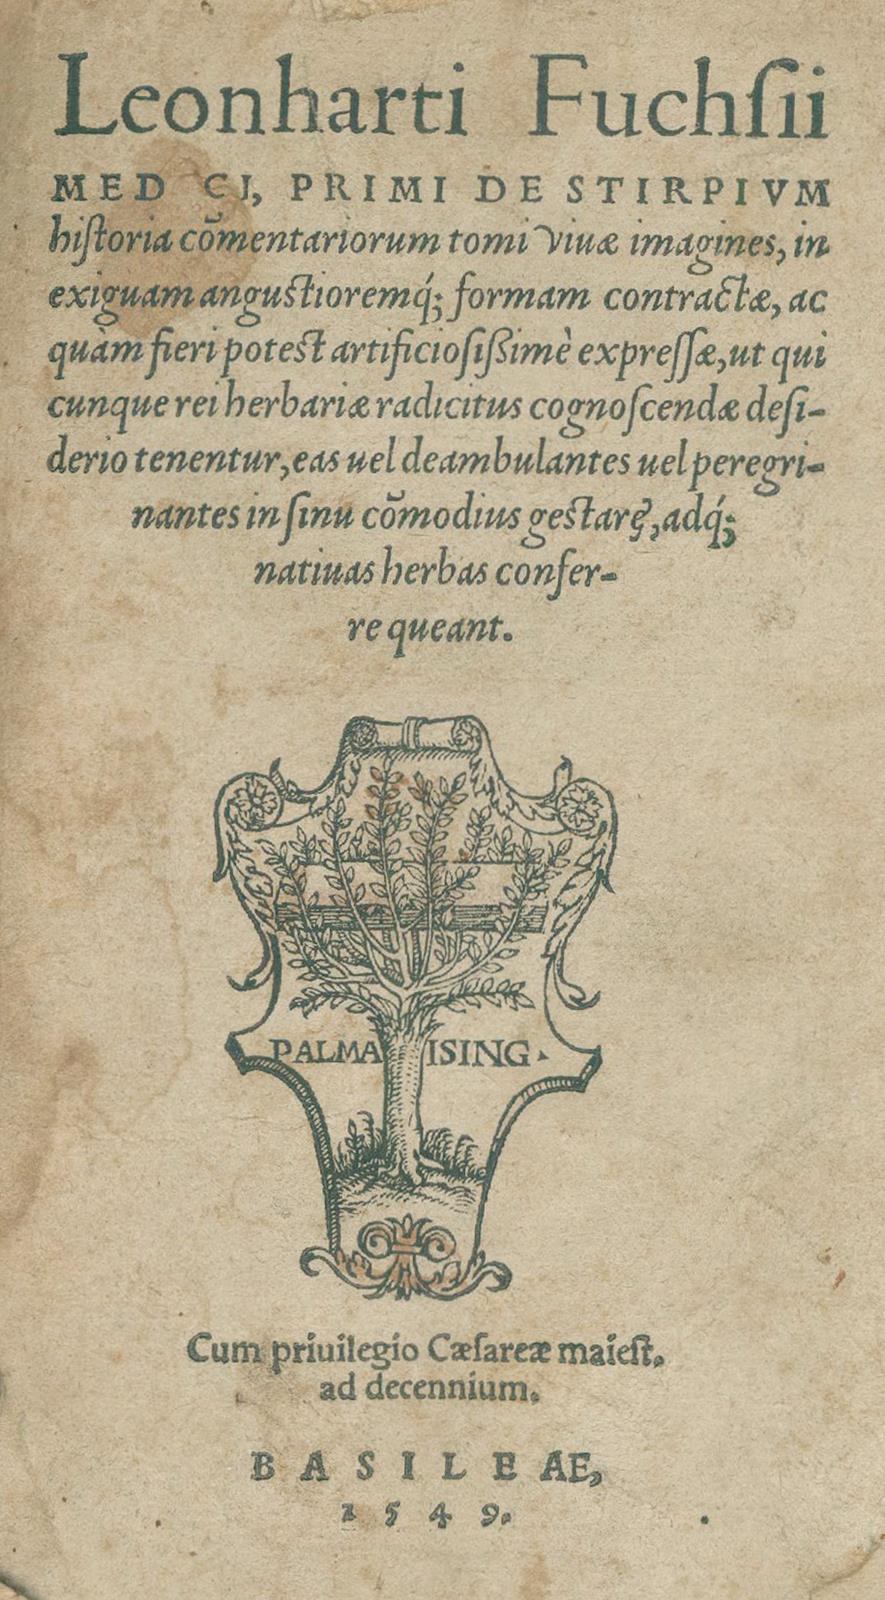 Leonharti Fuchſii
MED CI, PRIMI DE STIRPIVM
hiſtoria cōmentariorum tomi viuæ imagines, in
exiguam anguſtioremq́; formam contractæ, ac
quàm fieri poteſt artificioſiſsimè expreſſæ, ut qui
cunque rei herbariæ radicitus cognoſcendæ deſi-
derio tenentur, eas uel deambulantes uel peregri-
nantes in ſinu cōmodius geſtarę, adq́;
natiuas herbas confer-
re queant.
PALMA ISING.
Cum priuilegio Cæſareæ maieſt.
ad decennium.
BASILEAE,
1549.